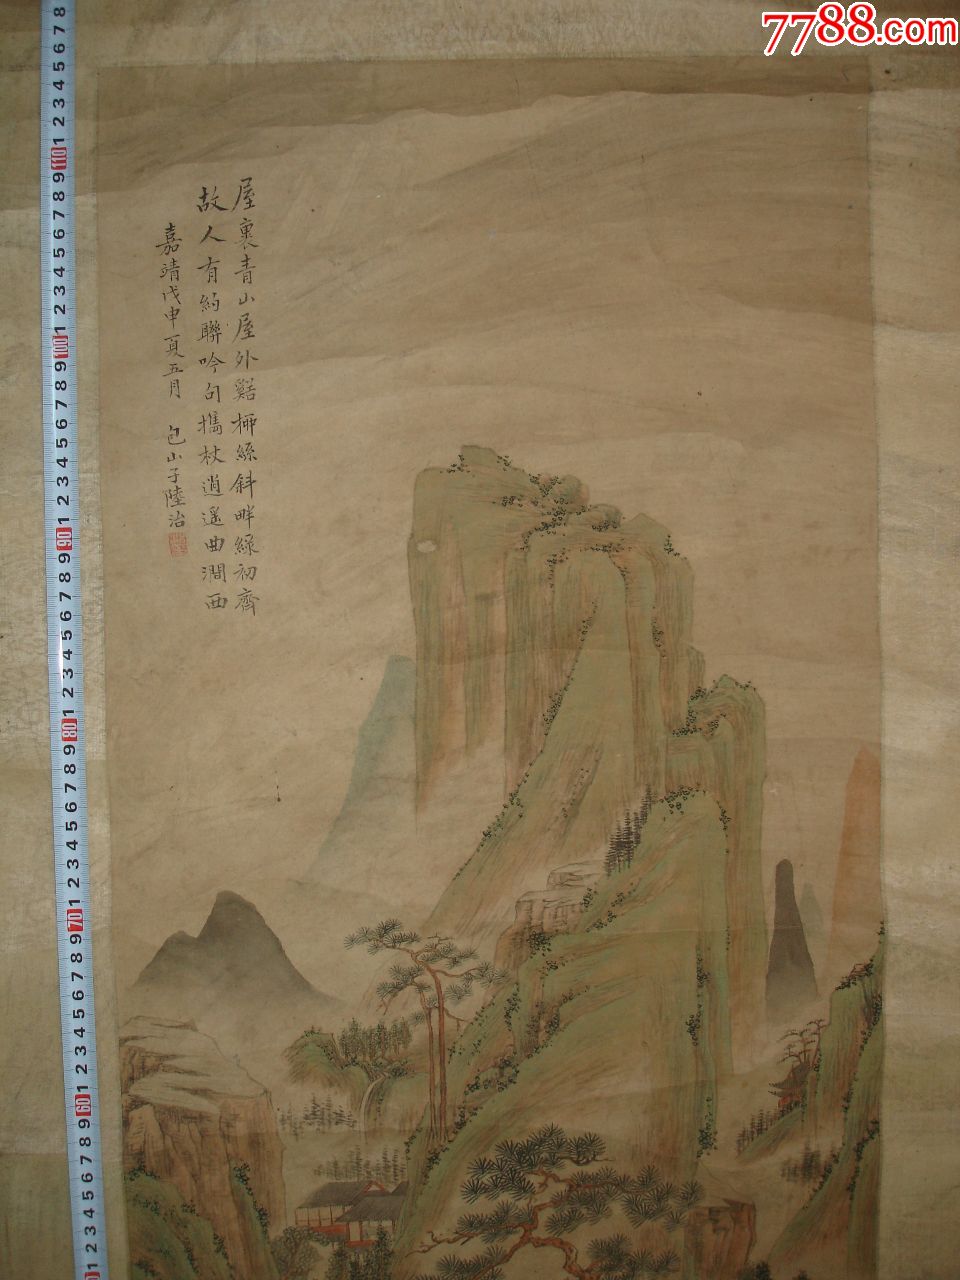 7788.com
屋裏青山屋外谿柳絲斜畔綠初齊
故人有約聯吟句攜杖逍遙曲澗西
嘉靖戊申夏五月 包山子陸治
8
7
6
5
4
3
2
1
110
9
8
7
6
5
4
3
2
1
100
9
8
7
6
5
4
3
2
1
90
9
8
7
6
5
4
3
2
1
80
9
8
7
6
5
4
3
2
1
70
9
8
7
6
5
4
3
2
1
60
9
8
7
6
5
4
3
2
1